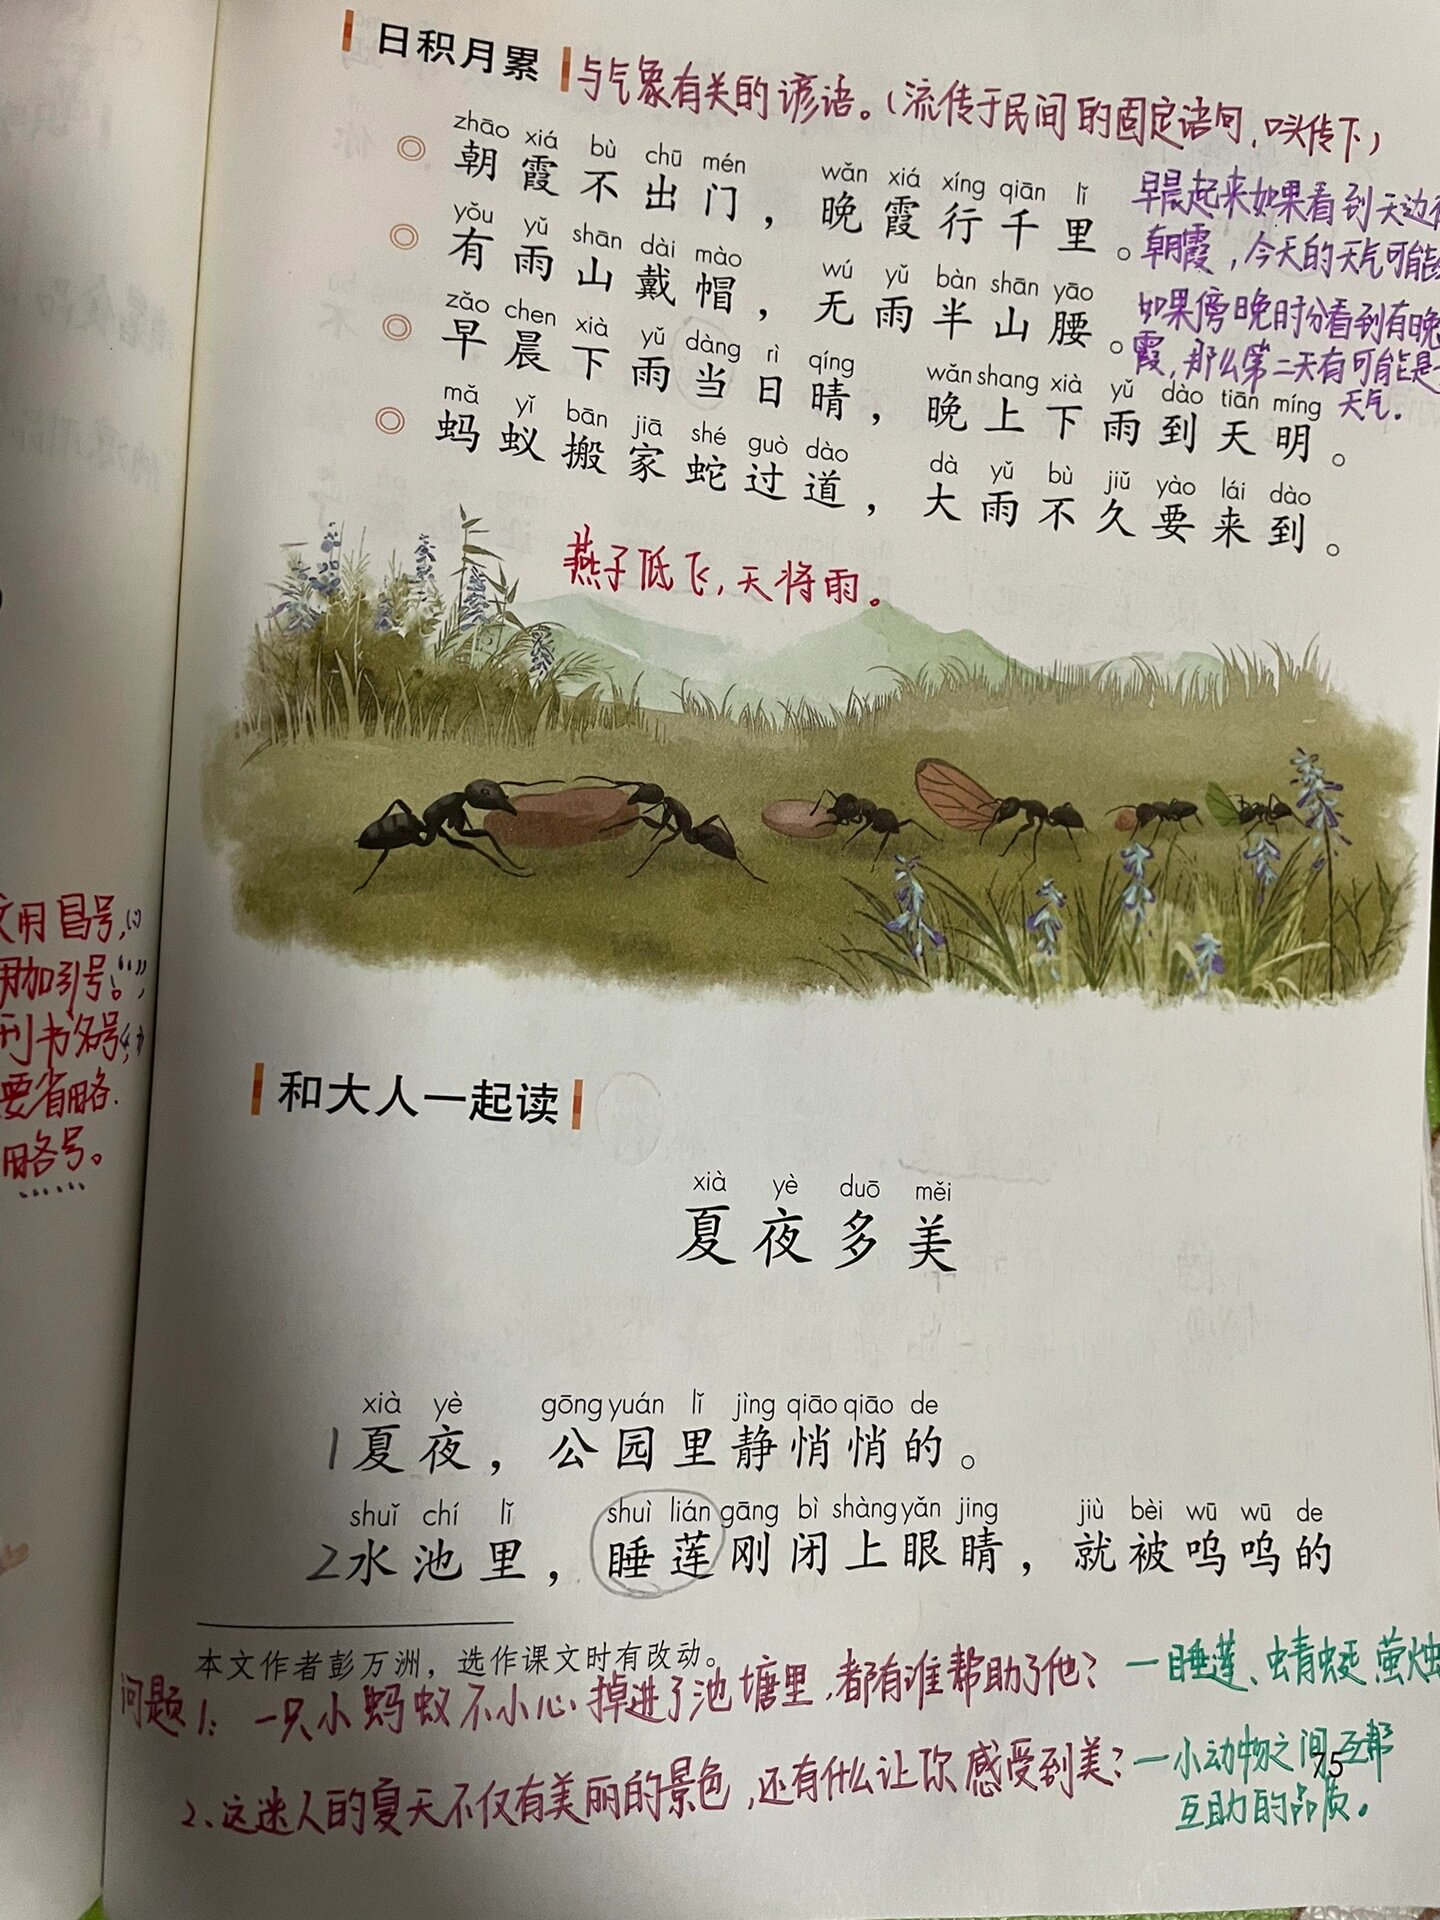 日积月累
与气象有关的谚语。(流传于民间的固定语句,口头传下)
zhāo xiá bù chū mén wǎn xiá xíng qiān lǐ
朝霞不出门，晚霞行千里。
早晨起来如果看到天边有
朝霞，今天的天气可能
yǒu yǔ shān dài mào wú yǔ bàn shān yāo
有雨山戴帽，无雨半山腰。
如果傍晚时分看到有晚
霞,那么第二天有可能是
天气.
zǎo chen xià yǔ dàng rì qíng wǎn shang xià yǔ dào tiān míng
早晨下雨当日晴，晚上下雨到天明。
mǎ yǐ bān jiā shé guò dào dà yǔ bù jiǔ yào lái dào
蚂蚁搬家蛇过道，大雨不久要来到。
燕子低飞,天将雨。
文用冒号,(:)
用加引号。“”
刊书名号《》
要省略.
略号。
……
和大人一起读
xià yè duō měi
夏夜多美
xià yè gōng yuán lǐ jìng qiāo qiāo de
1夏夜，公园里静悄悄的。
shuǐ chí lǐ shuì lián gāng bì shàng yǎn jing jiù bèi wū wū de
2水池里，睡莲刚闭上眼睛，就被呜呜的
本文作者彭万洲，选作课文时有改动。
问题1:一只小蚂蚁不小心掉进了池塘里,都有谁帮助了他?—睡莲、蜻蜓、萤烛
2、这迷人的夏天不仅有美丽的景色,还有什么让你感受到美?—小动物之间互帮
互助的品质。
75